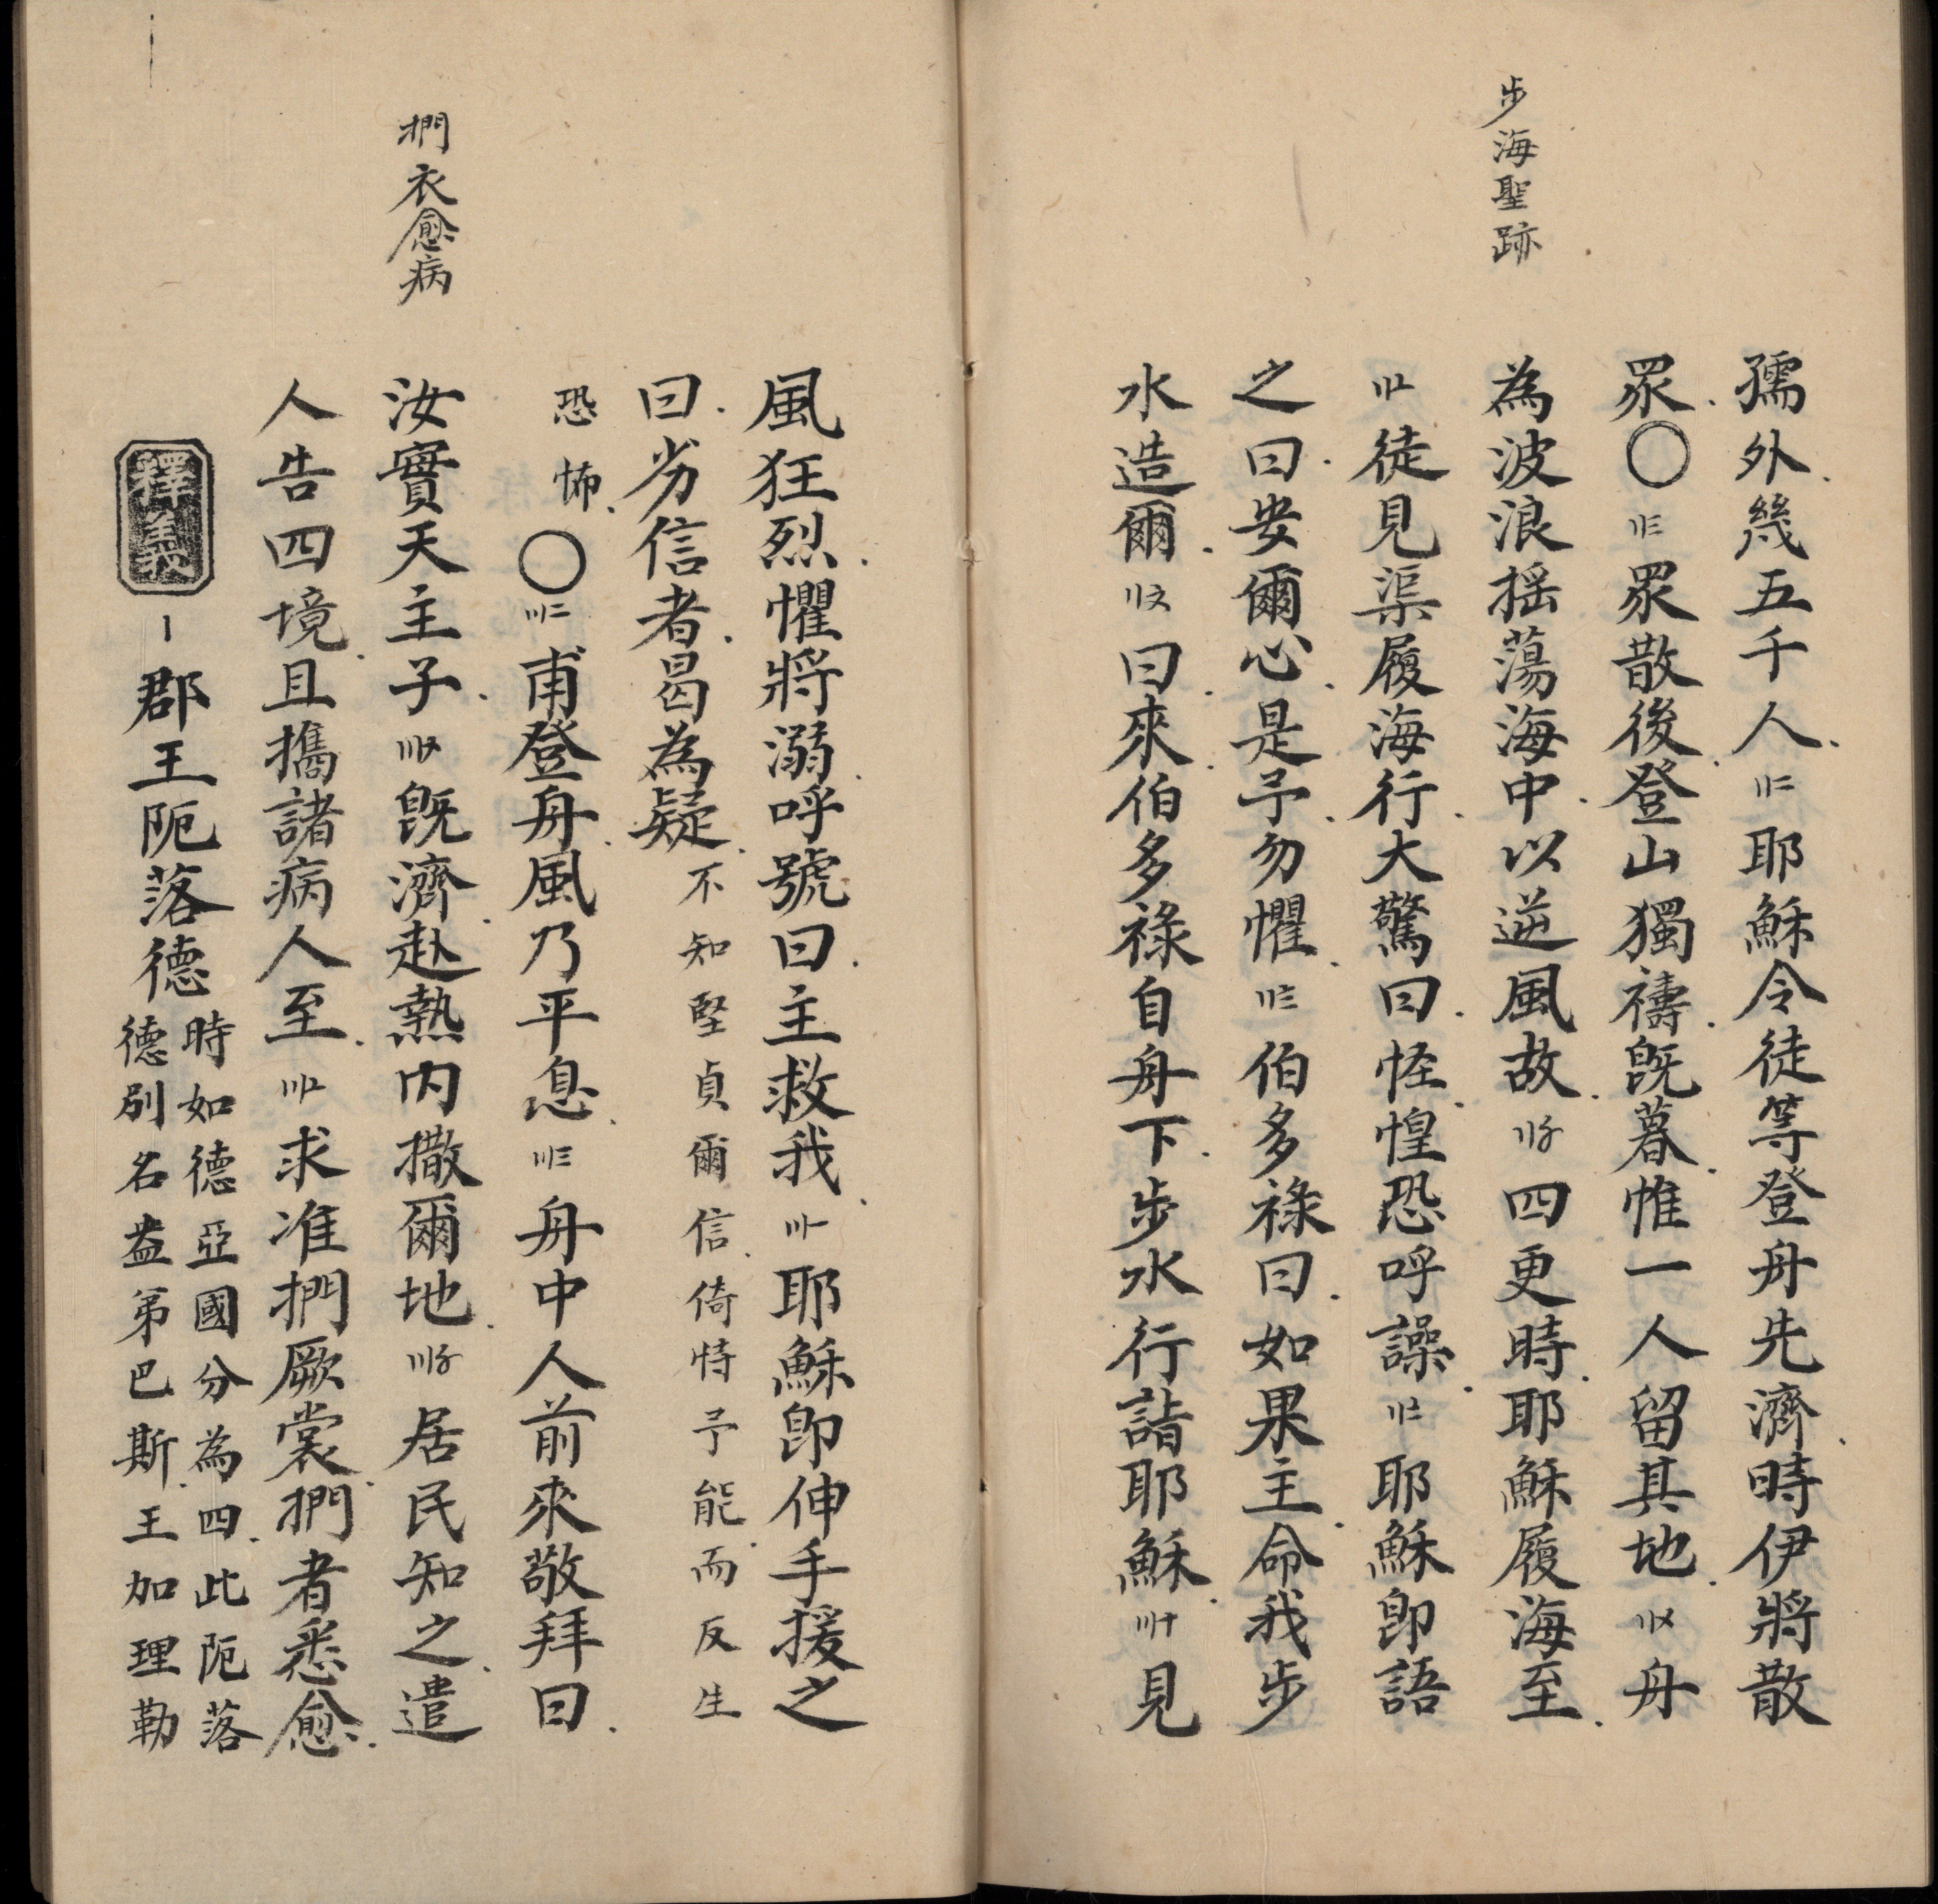 步海聖跡
孺外幾五千人〢二耶穌令徒等登舟先濟時伊將散
眾〇〢三眾散後登山獨禱旣暮惟一人留其地〢〤舟
為波浪摇蕩海中以逆風故〢〥四更時耶穌履海至
〢〦徒見渠履海行大驚曰怪惶恐呼譟〢〧耶穌卽語
之曰安爾心是予勿懼〢〨伯多祿曰如果主命我步
水造爾〢〩曰來伯多祿自舟下步水行詣耶穌〣十見
風狂烈懼將溺呼號曰主救我〣〡耶穌卽伸手援之
曰劣信者曷為疑不知堅貞爾信倚恃予能而反生
恐怖〇〣二甫登舟風乃平息〣三舟中人前來敬拜曰
捫衣愈病
汝實天主子〣〤旣濟赴熱内撒爾地〣〥居民知之遣
人告四境且攜諸病人至〣〦求准捫厥裳捫者悉愈
釋義〡郡王阨落德時如德亞國分為四此阨落
德别名盎第巴斯王加理勒